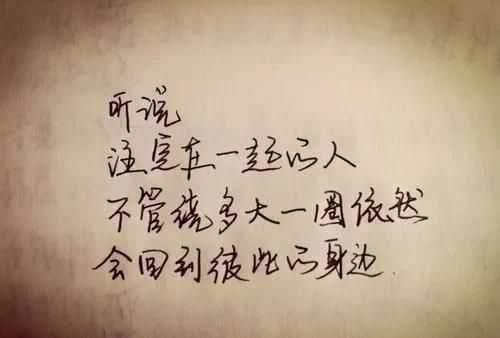 听说
注定在一起的人
不管绕多大一圈依然
会回到彼此的身边.